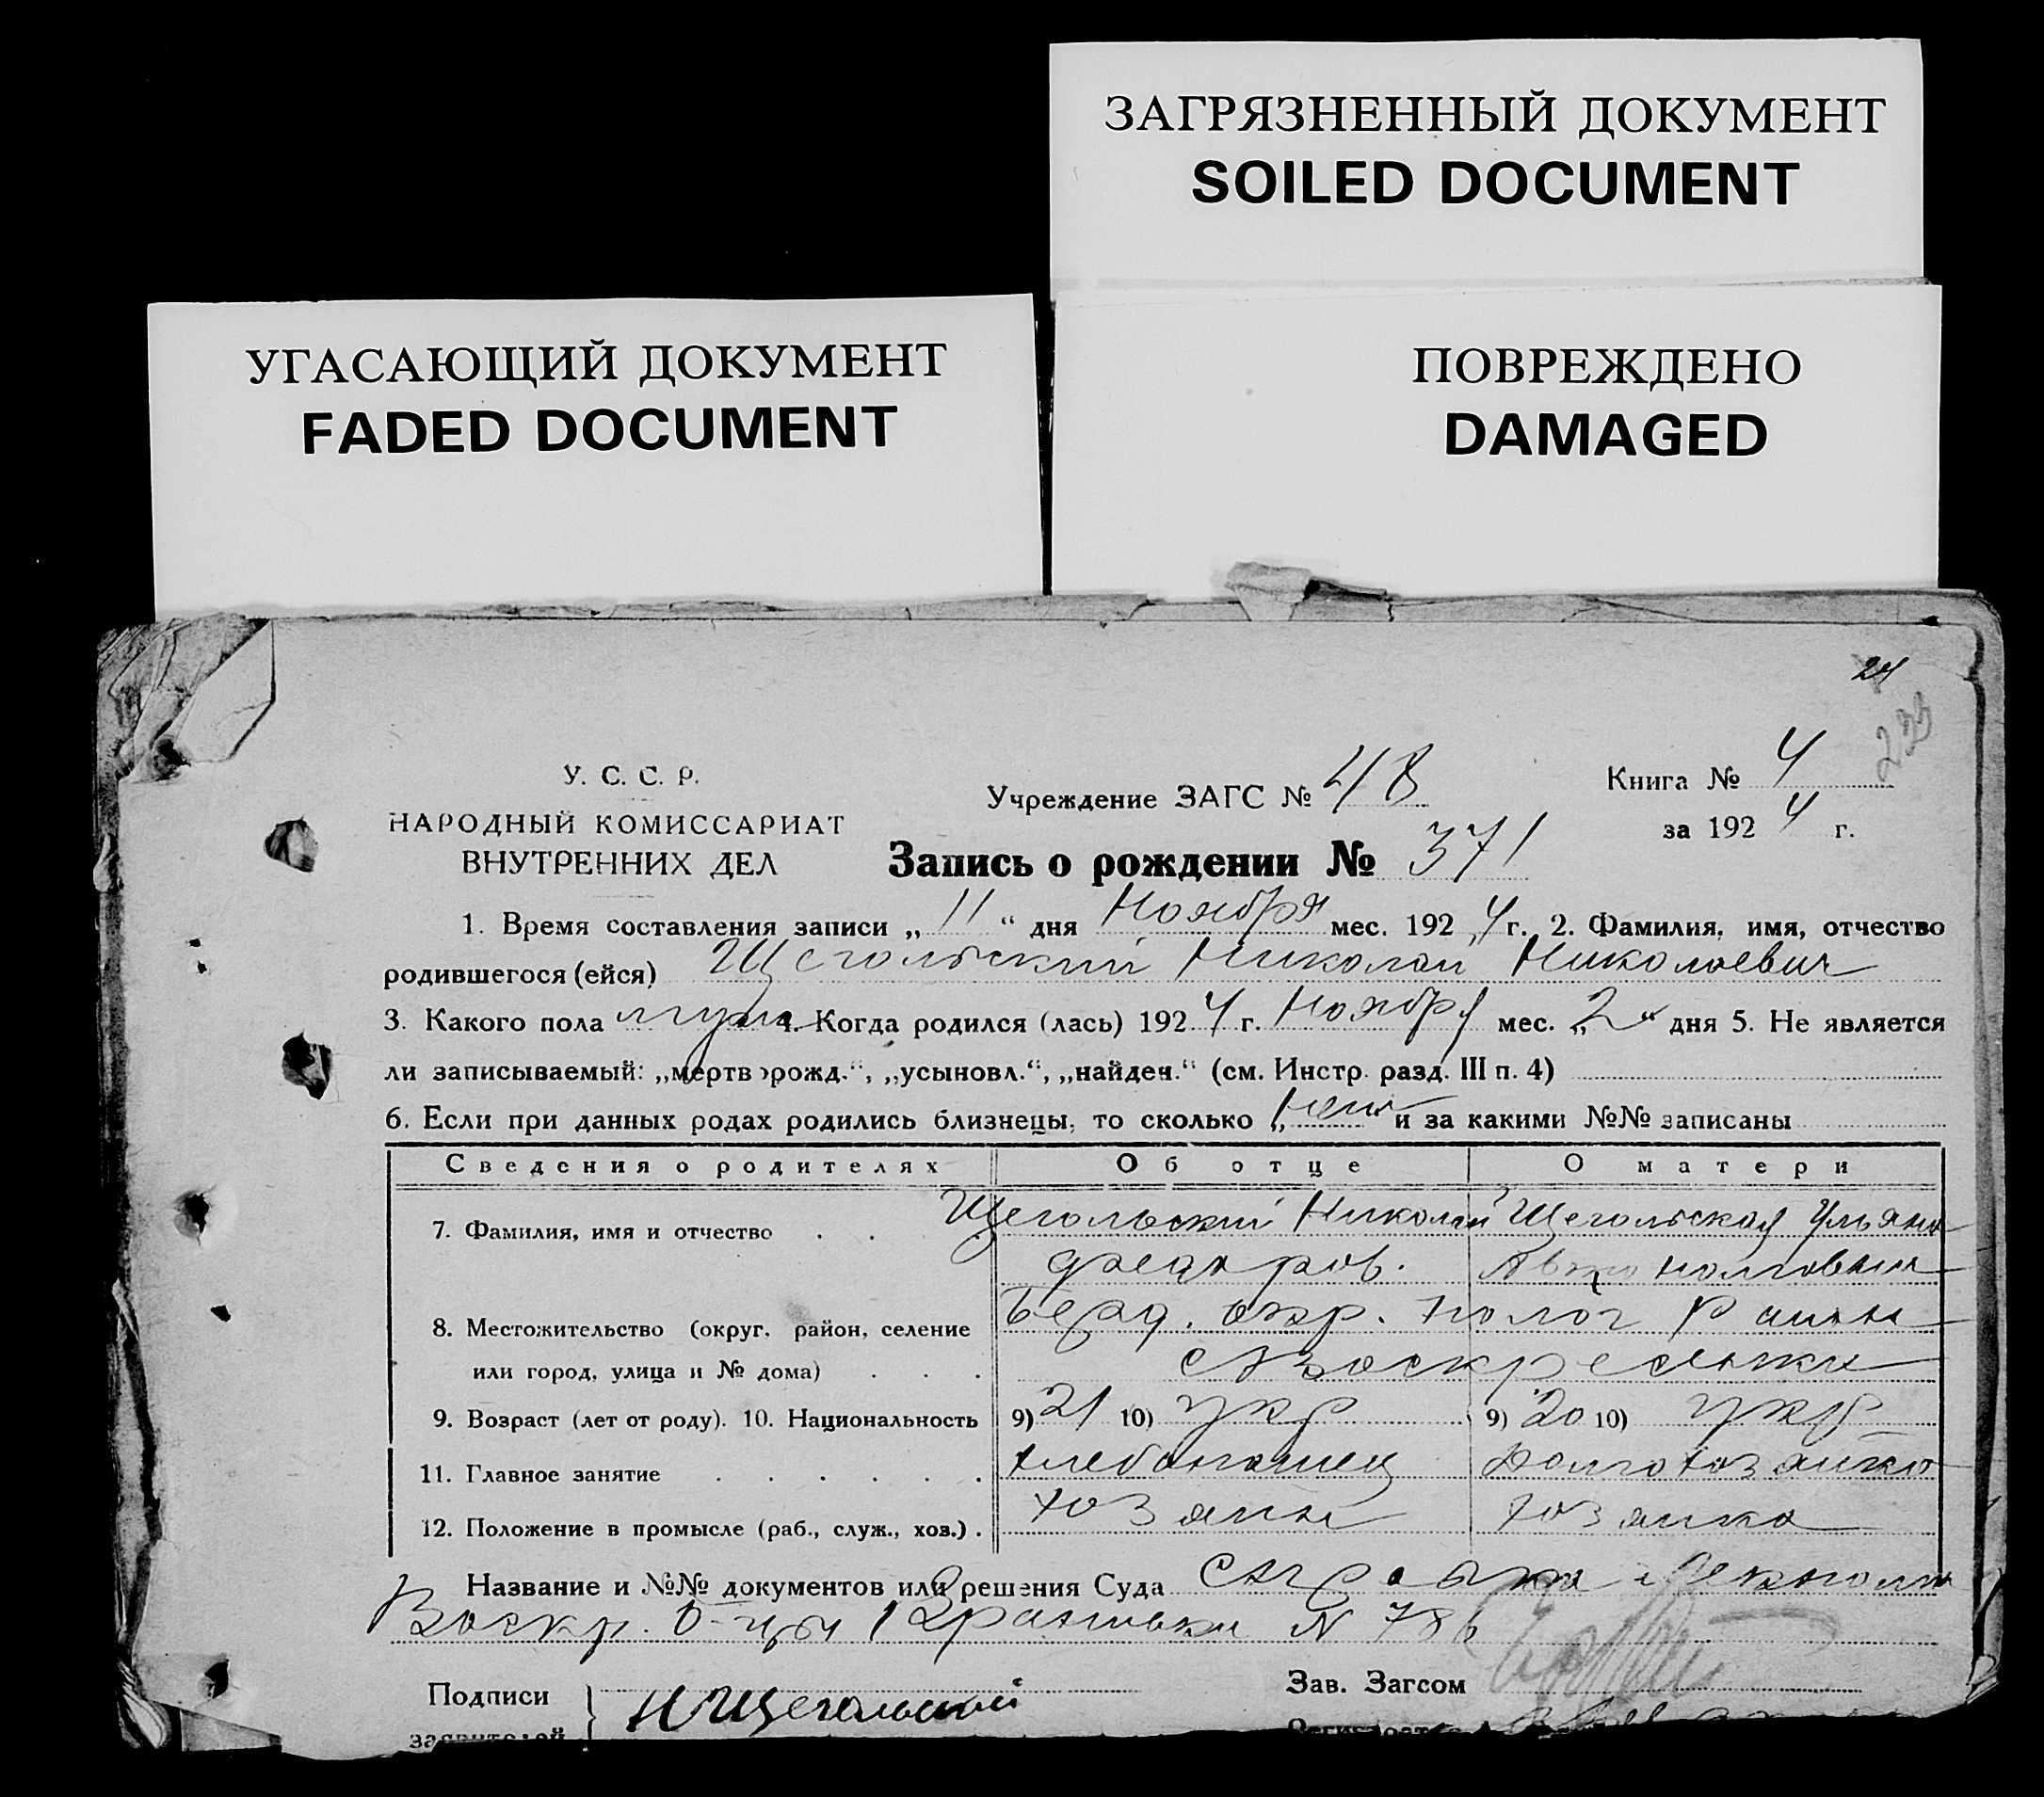 ЗАГРЯЗНЕННЫЙ ДОКУМЕНТ
SOILED DOCUMENT
УГАСАЮЩИЙ ДОКУМЕНТ
FADED DOCUMENT
ПОВРЕЖДЕНО
DAMAGED
24
У. С. С. Р.
НАРОДНЫЙ КОМИССАРИАТ
ВНУТРЕННИХ ДЕЛ
Учреждение ЗАГС № 48
Книга № 4
за 1924 г.
Запись о рождении № 371
1. Время составления записи „11“ дня Ноября мес. 1924 г. 2. Фамилия, имя, отчество
родившегося (ейся) Щегольский Николай Николаевич
3. Какого пола муж 4. Когда родился (лась) 1924 г. Ноября мес. „2“ дня 5. Не является
ли записываемый: „мертворожд.“, „усыновл.“, „найден.“ (см. Инстр. разд. III п. 4)
6. Если при данных родах родились близнецы, то сколько нет и за какими №№ записаны
Сведения о родителях Об отце О матери
7. Фамилия, имя и отчество Щегольский Николай Щегольская Ульяна
8. Местожительство (округ, район, селение Берд. окр. Полог Район
или город, улица и № дома)
9. Возраст (лет от роду). 10. Национальность 9) 21 10) укр 9) 20 10) укр
11. Главное занятие хлебопашец домохозяйка
12. Положение в промысле (раб., служ., хоз.) хозяин хозяйка
Название и №№ документов или решения Суда Справка
Воскр. N 786
Подписи Н Щегольский
заявителей
Зав. Загсом